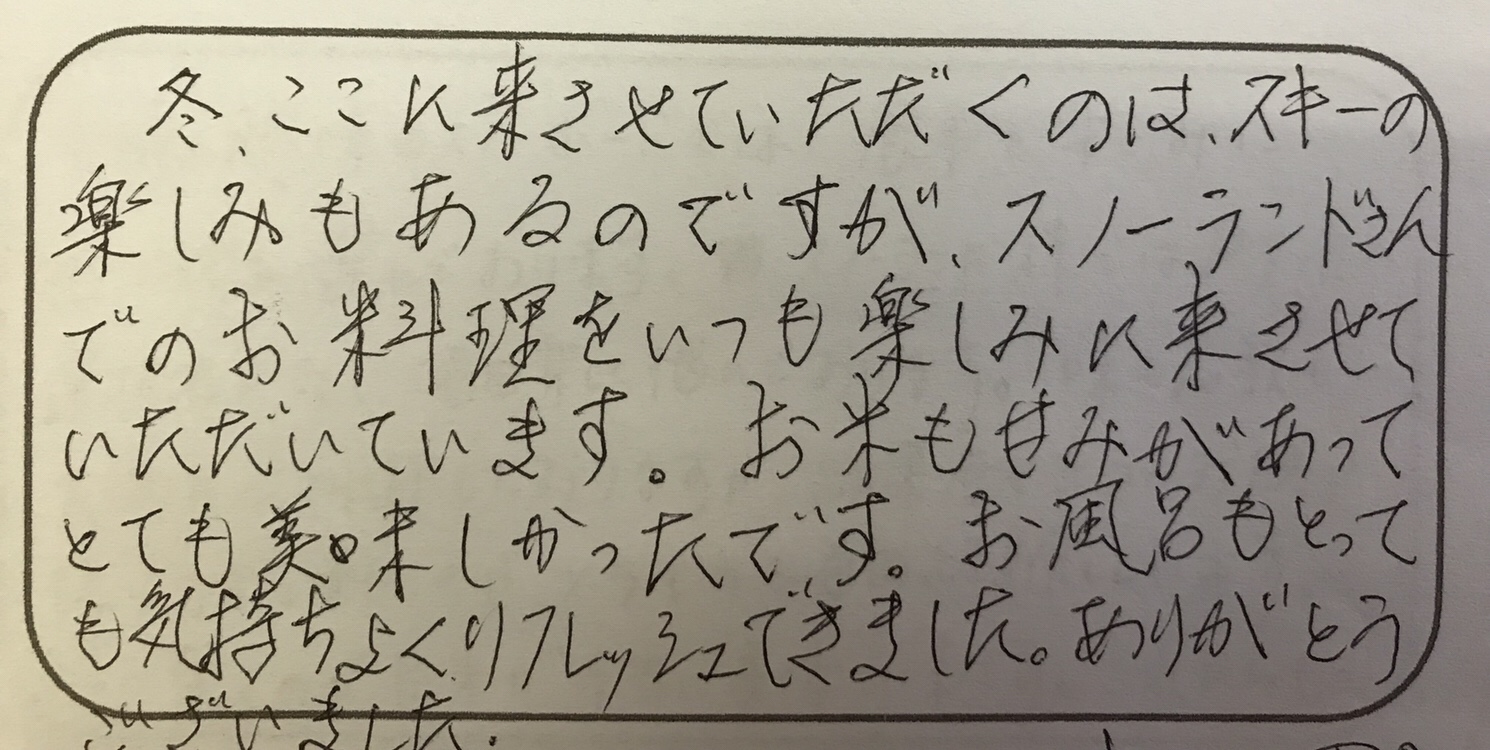 冬、ここに来させていただくのは、スキーの
楽しみもあるのですが、スノーランドさん
でのお料理をいつも楽しみに来させて
いただいています。お米も甘みがあって
とても美味しかったです。お風呂もとって
も気持ちよくリフレッシュできました。ありがとう
ございました。